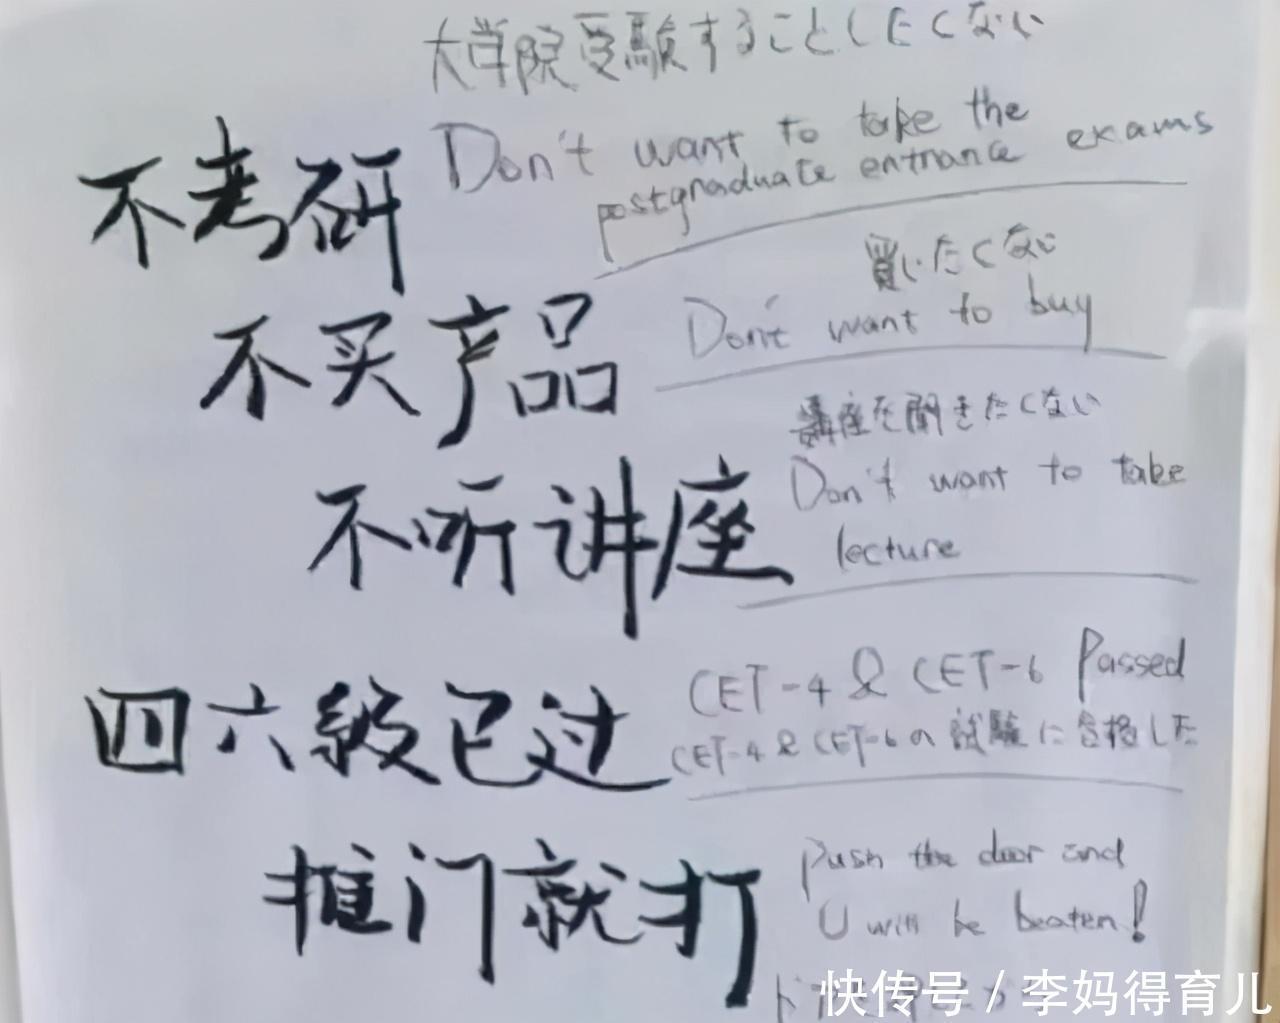 大学院受験することしたくない
不考研
Don't want to take the
postgraduate entrance exams
買いたくない
不买产品
Don't want to buy
講座を聞きたくない
不听讲座
Don't want to take
lecture
CET-4 & CET-6 Passed
四六级已过
CET-4 & CET-6の試験に合格した
推门就打
Push the door and
U will be beaten!
快传号 / 李妈得育儿